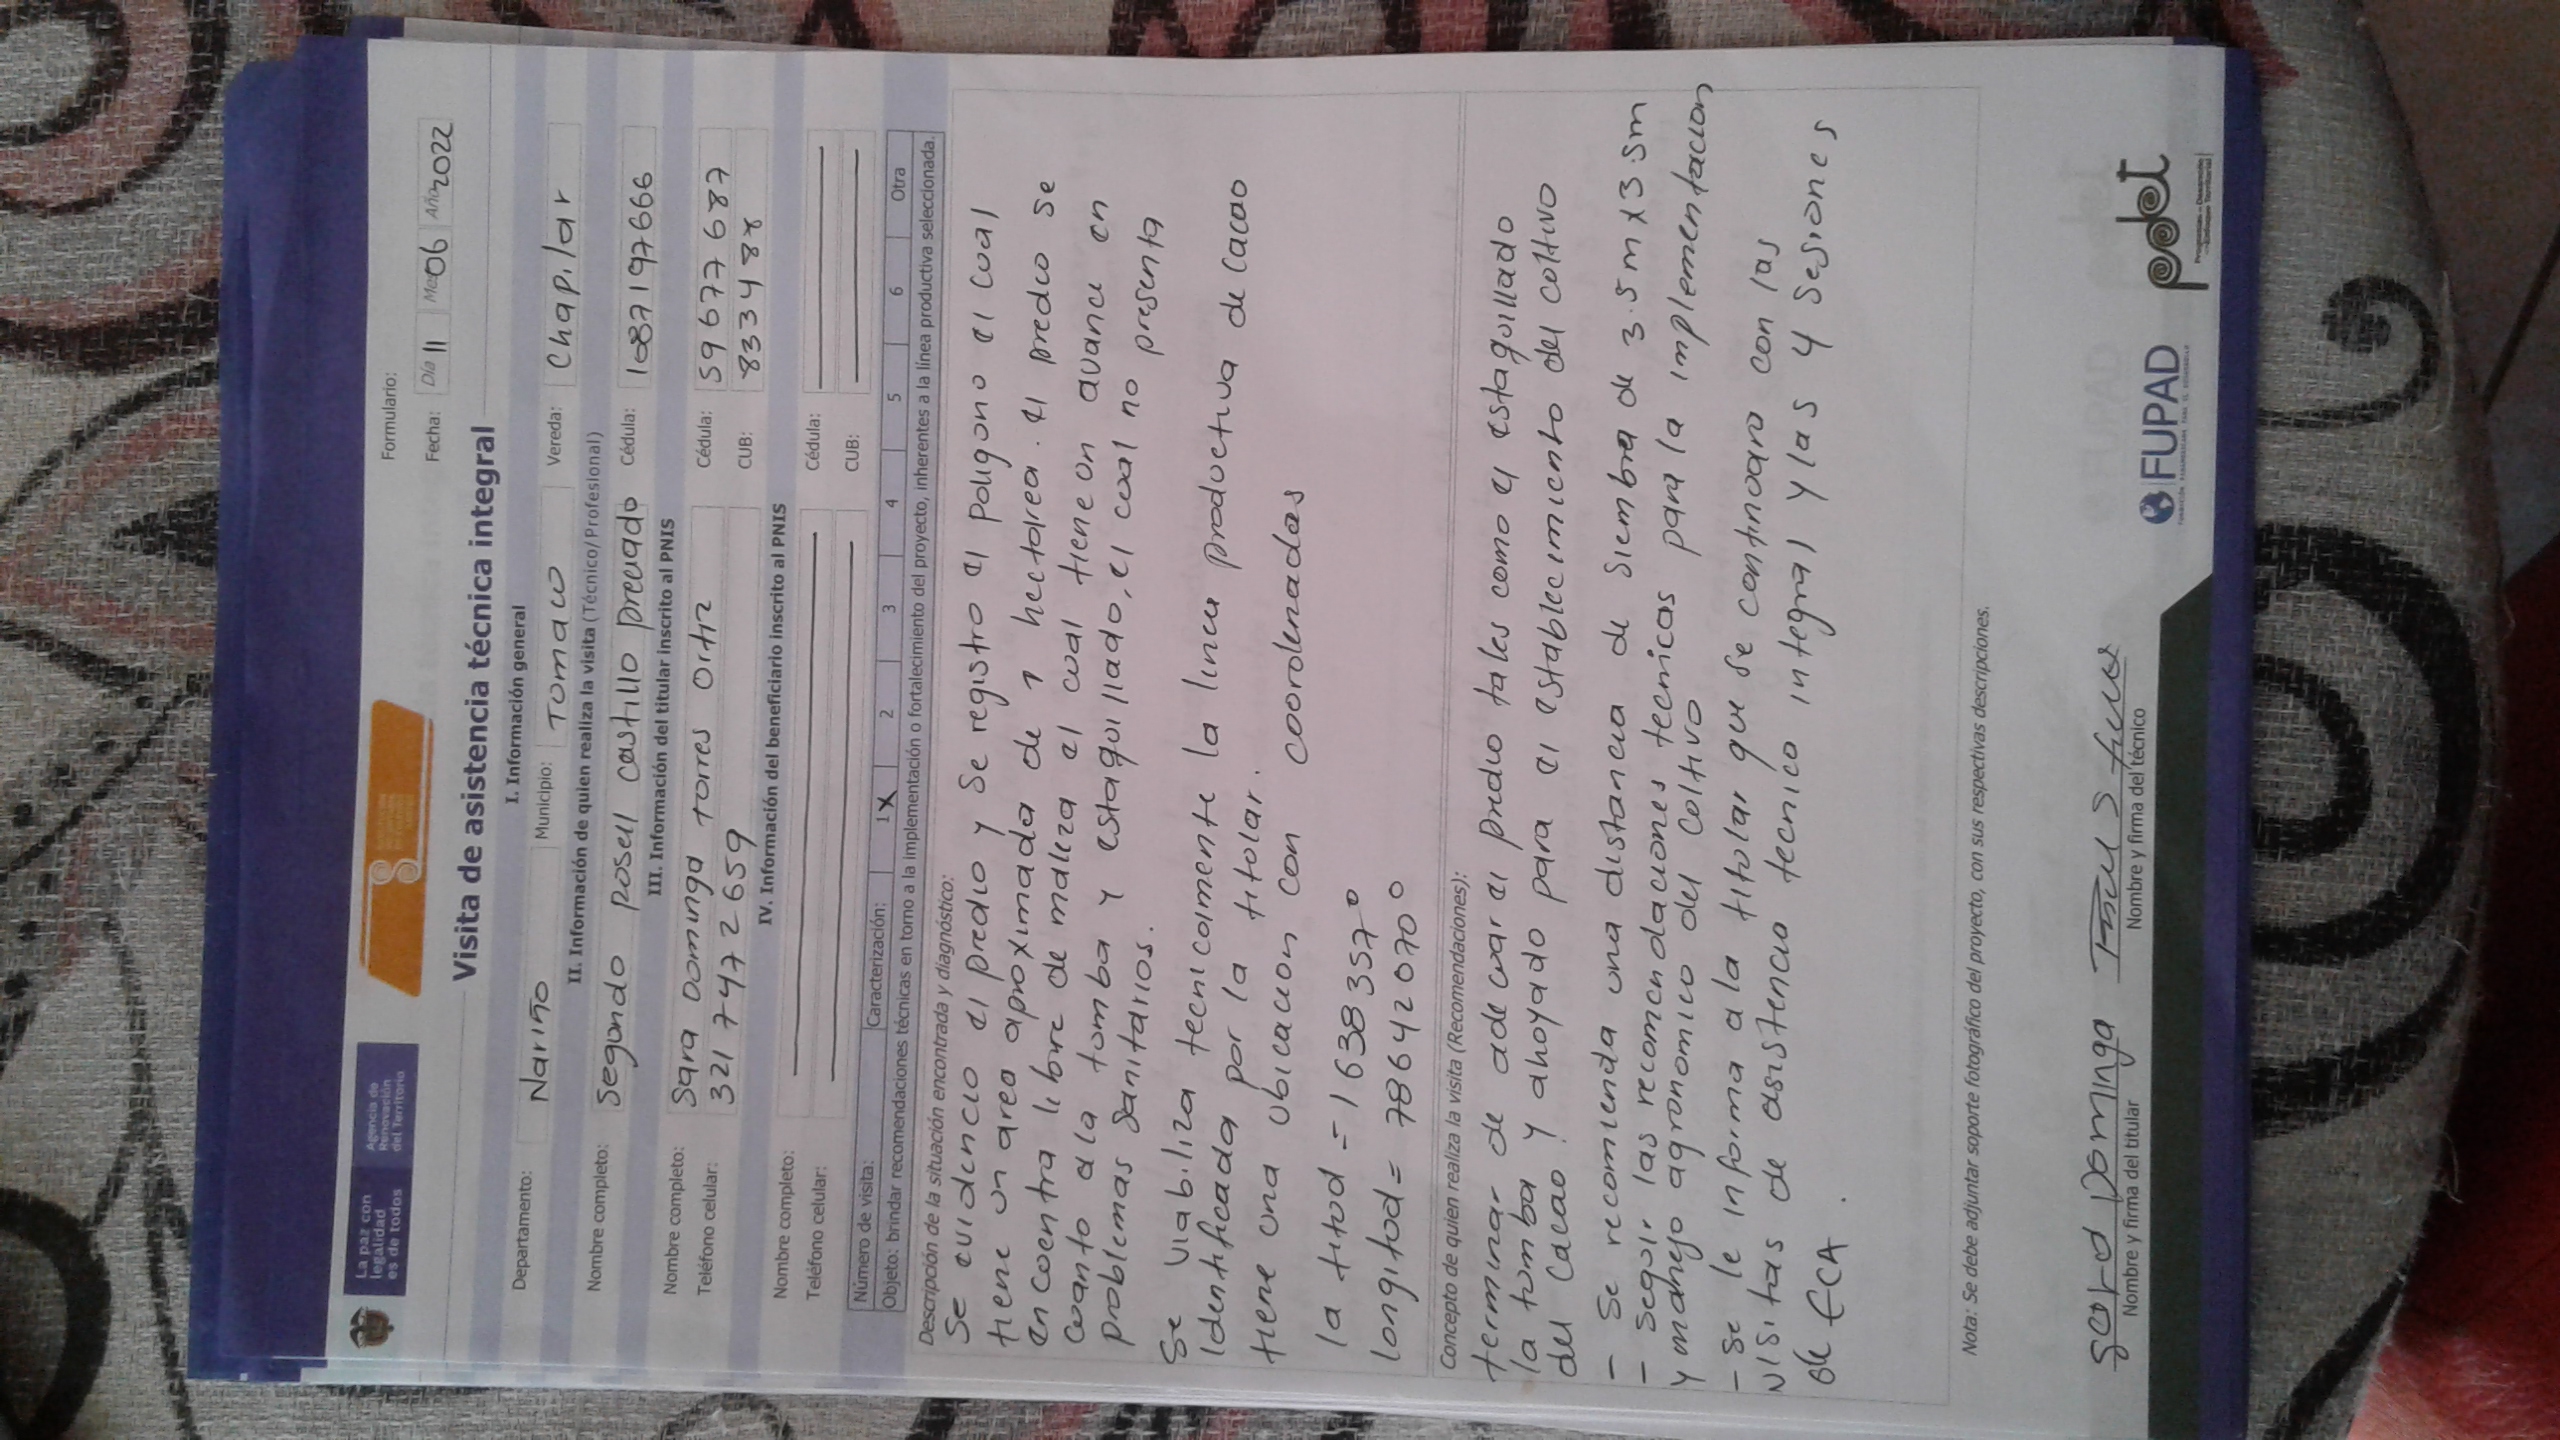 La paz con
legalidad
es de todos
Agencia de
Renovación
del Territorio
Formulario:
Fecha: Día 11 Mes 06 Año 2022
Visita de asistencia técnica integral
I. Información general
Departamento: Nariño Municipio: Tomaco Vereda: Chapilar
II. Información de quien realiza la visita (Técnico/Profesional)
Nombre completo: Segundo posell castillo preciado Cédula: 1087197666
III. Información del titular inscrito al PNIS
Nombre completo: Sara Dominga torres Ortiz Cédula: 59677687
Teléfono celular: 3217472659 CUB: 833488
IV. Información del beneficiario inscrito al PNIS
Nombre completo: Cédula:
Teléfono celular: CUB:
Número de visita: Caracterización: 1 X 2 3 4 5 6 Otra
Objeto: brindar recomendaciones técnicas en torno a la implementación o fortalecimiento del proyecto, inherentes a la línea productiva seleccionada.
Descripción de la situación encontrada y diagnóstico:
Se evidencio el predio y se registro el poligono el coal
tiene un area aproximada de 1 hectarea. el predio se
encoentra libre de maleza el coal tiene on avance en
coanto a la tomba y estaquillado, el coal no presenta
problemas sanitarios.
Se viabiliza tecnicolmente la linea productiva de cacao
Identificada por la titolar.
tiene una ubicacion con coordenadas
la titod = 1638357°
longitod = 78642070°
Concepto de quien realiza la visita (Recomendaciones):
terminar de adecuar el predio tales como el estaquillado
la tomba y ahoyado para el establecimiento del coltivo
del cacao.
- Se recomienda una distancia de siembra de 3.5m x 3.5m
- Seguir las recomendaciones tecnicas para la implementacion
y manejo agronomico del coltivo
- Se le informa a la titolar que se continoara con las
visitas de asistencia tecnico integral y las 4 sesiones
de ECA.
Nota: Se debe adjuntar soporte fotográfico del proyecto, con sus respectivas descripciones.
Sara Dominga
Nombre y firma del titular Nombre y firma del técnico
FUPAD
FUNDACIÓN PANAMERICANA PARA EL DESARROLLO
pdet
Programas de Desarrollo
con Enfoque Territorial